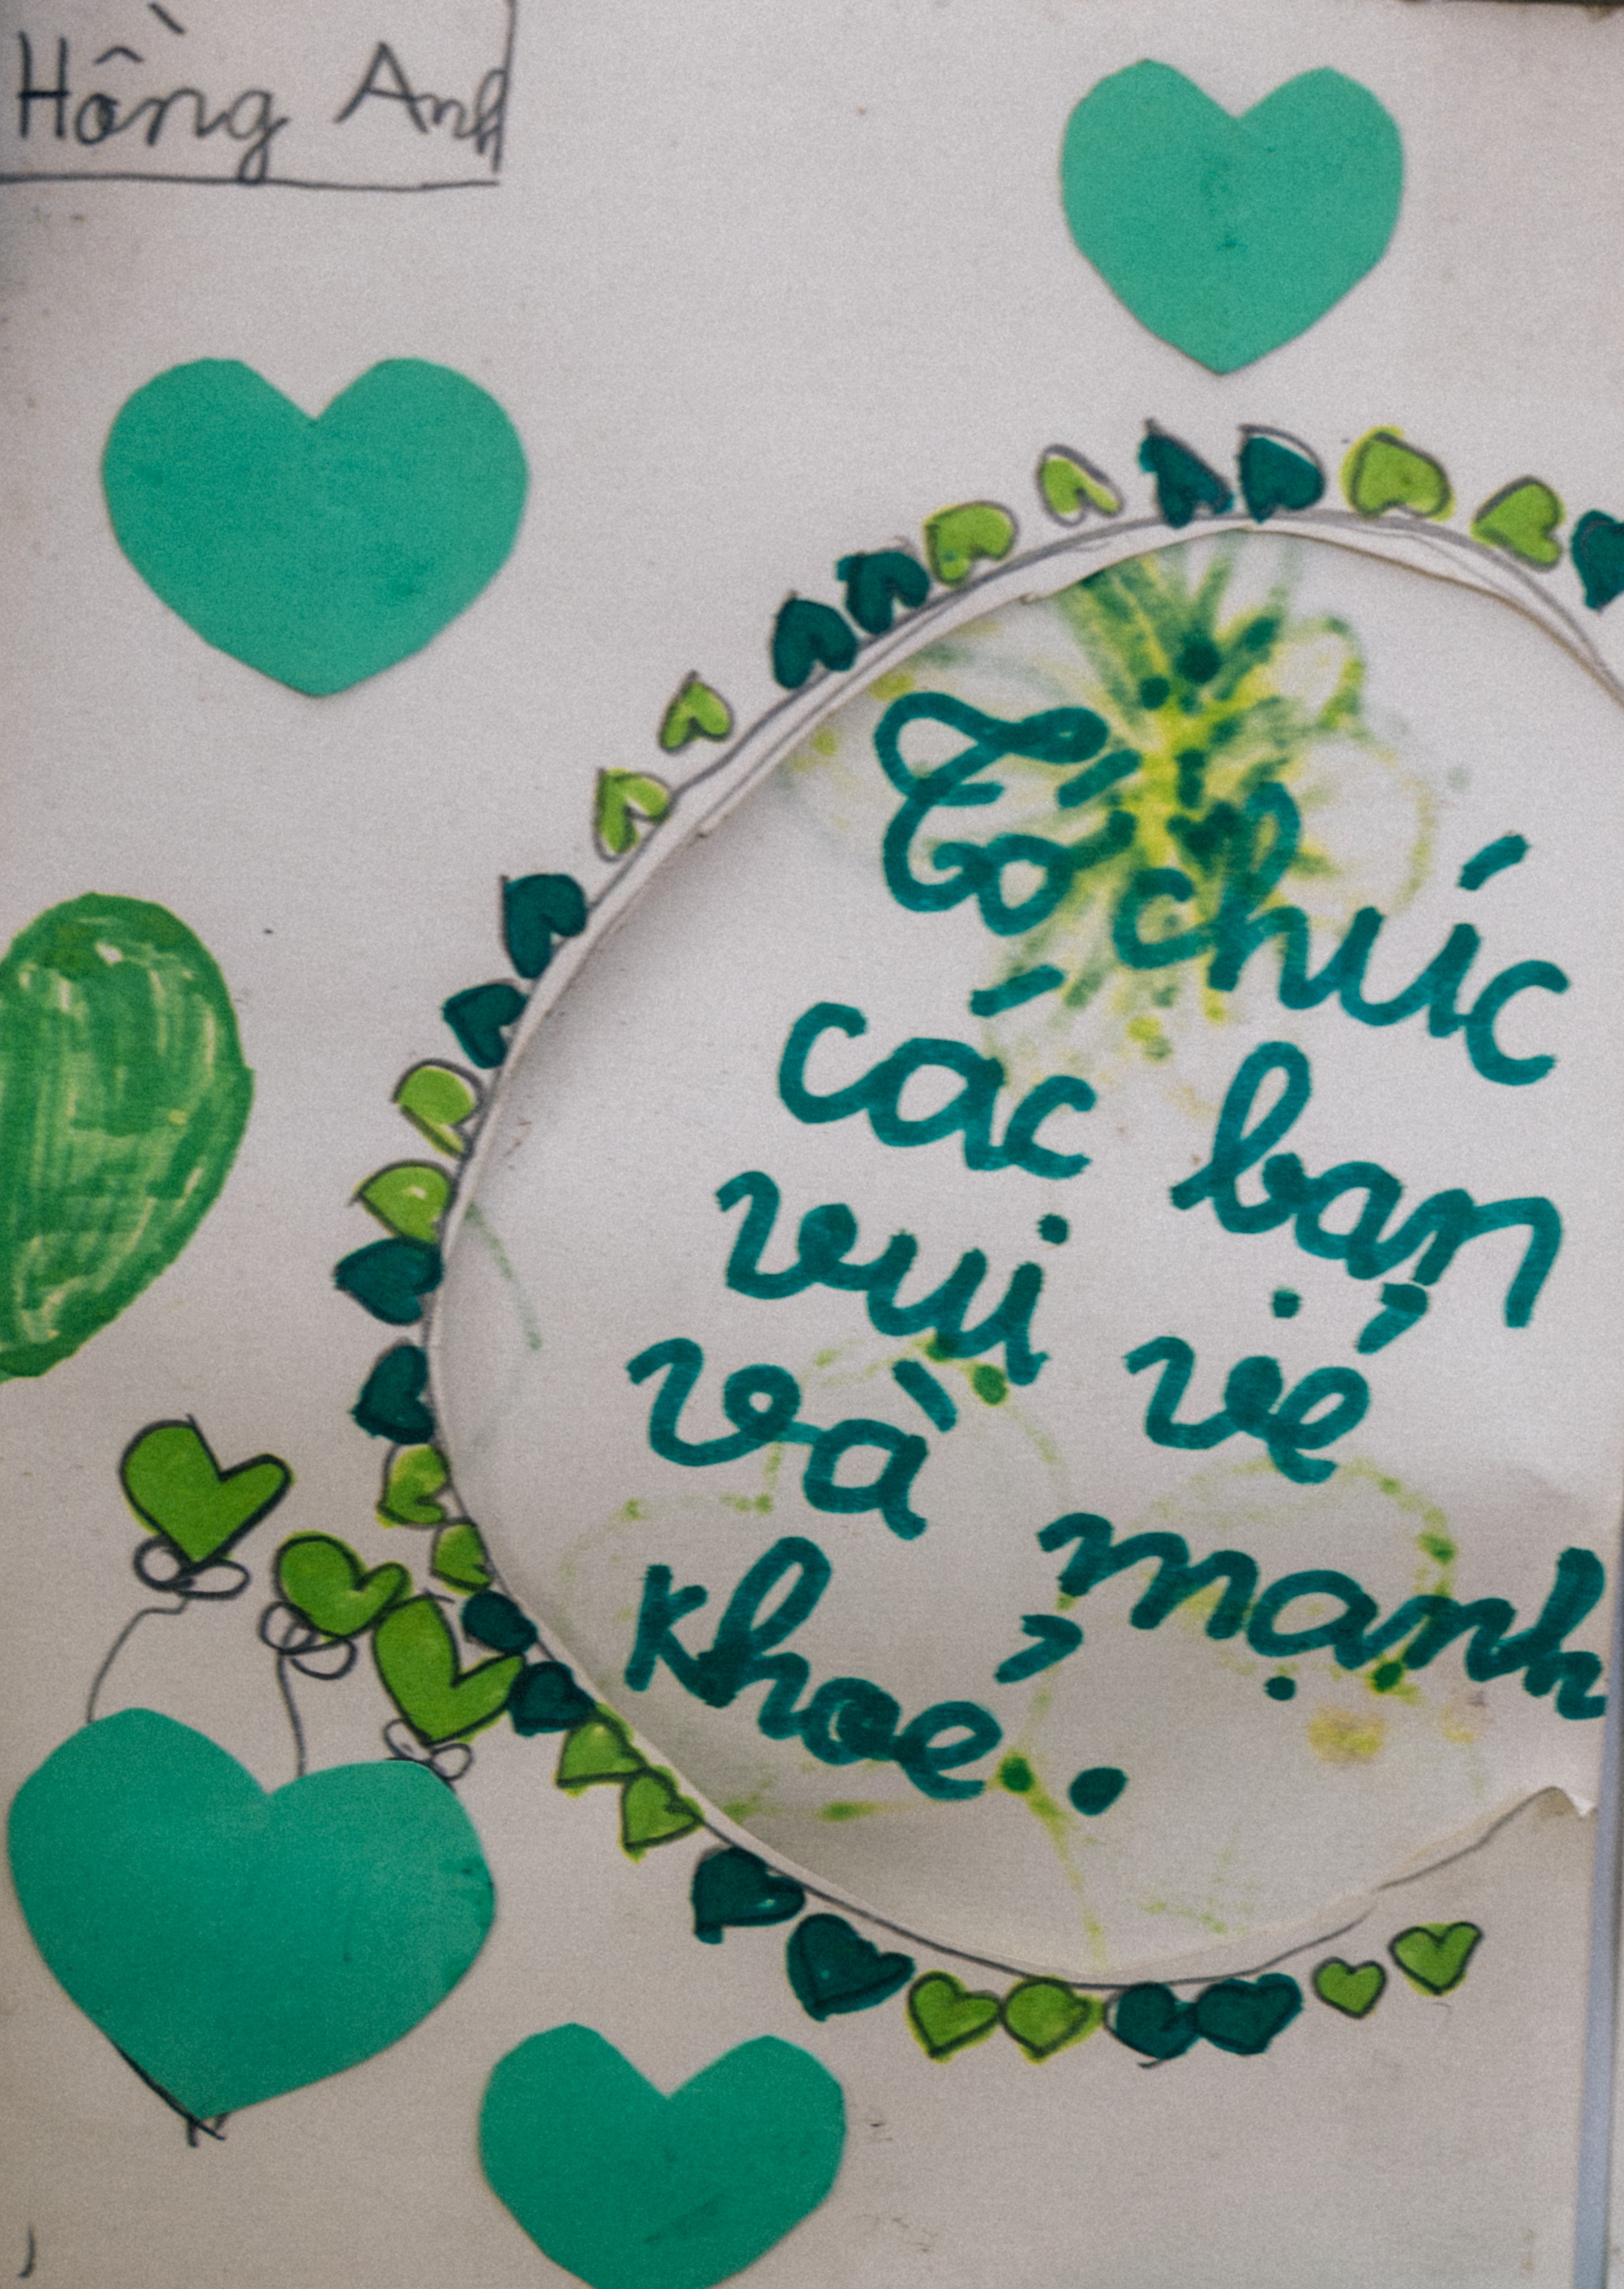 Hồng Anh
Tớ chúc
các bạn
vui vẻ
và mạnh
khoẻ.